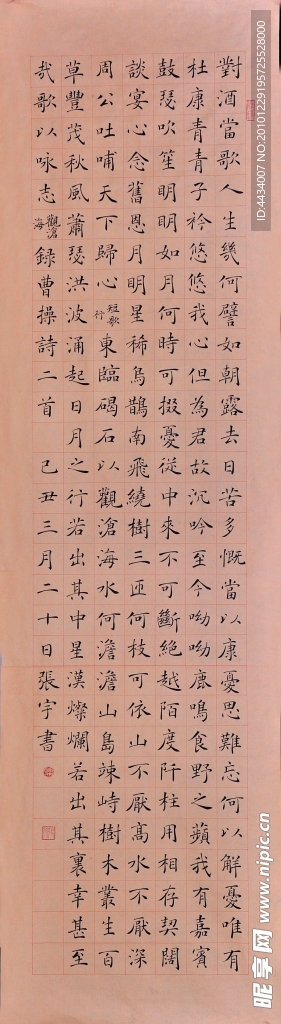 對酒當歌人生幾何譬如朝露去日苦多慨當以康憂思難忘何以解憂唯有
杜康青青子衿悠悠我心但為君故沉吟至今呦呦鹿鳴食野之蘋我有嘉賓
鼓瑟吹笙明明如月何時可掇憂從中來不可斷絕越陌度阡柱用相存契闊
談宴心念舊恩月明星稀烏鵲南飛繞樹三匝何枝可依山不厭高水不厭深
周公吐哺天下歸心短歌行東臨碣石以觀滄海水何澹澹山島竦峙樹木叢生百
草豐茂秋風蕭瑟洪波涌起日月之行若出其中星漢燦爛若出其裏幸甚至
哉歌以咏志觀滄海録曹操詩二首 己丑三月二十日張宇書
ID:4434007 NO:20101229195725528000
昵享网 www.nipic.cn